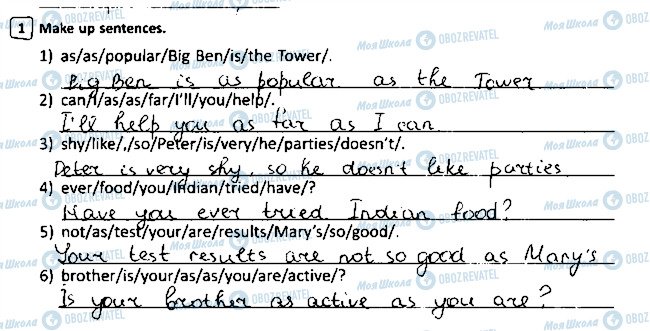 1 Make up sentences.
1) as/as/popular/Big Ben/is/the Tower/.
Big Ben is as popular as the Tower
2) can/I/as/as/far/I'll/you/help/.
I'll help you as far as I can
3) shy/like/,/so/Peter/is/very/he/parties/doesn't/.
Peter is very shy so he doesn't like parties
4) ever/food/you/Indian/tried/have/?
Have you ever tried Indian food?
5) not/as/test/your/are/results/Mary's/so/good/.
Your test results are not so good as Mary's
6) brother/is/your/as/as/you/are/active/?
Is your brother as active as you are?
Моя Школа OBOZREVATEL